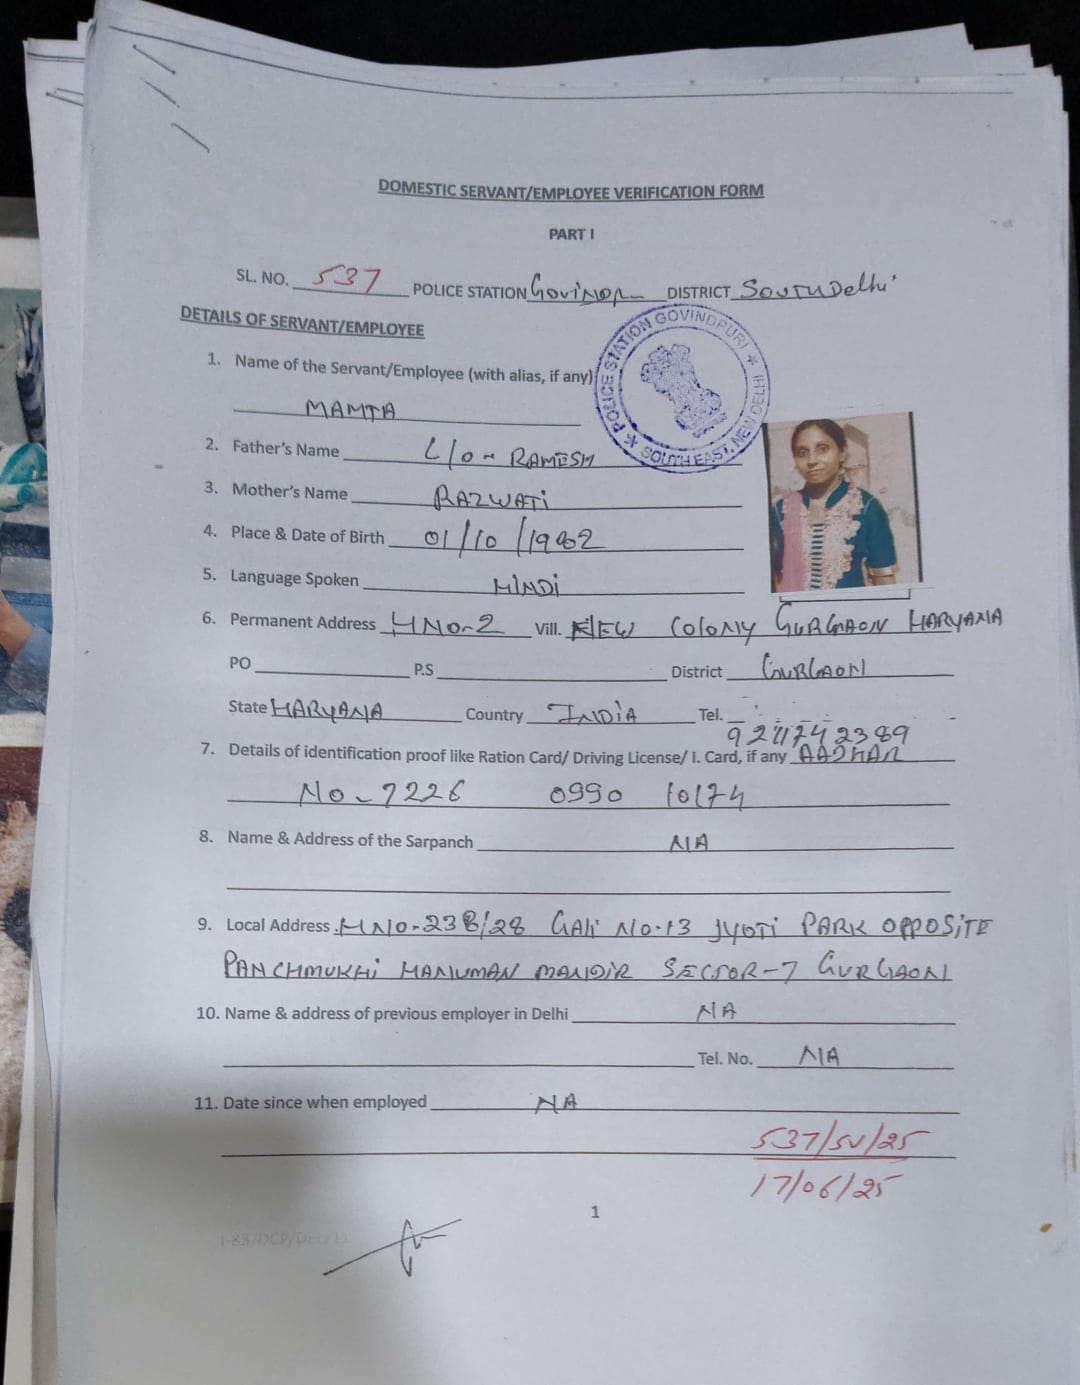 DOMESTIC SERVANT/EMPLOYEE VERIFICATION FORM
PART I
SL. NO. 537 POLICE STATION Govindpuri DISTRICT SOUTH Delhi
POLICE STATION GOVINDPURI * SOUTH EAST, NEW DELHI *
DETAILS OF SERVANT/EMPLOYEE
1. Name of the Servant/Employee (with alias, if any)
MAMTA
2. Father's Name RAMESH
3. Mother's Name RAZWATI
4. Place & Date of Birth 01/10/1982
5. Language Spoken HINDI
6. Permanent Address HNO-2 Vill. NEW COLONY GURGAON HARYANA
PO P.S District GURGAON
State HARYANA Country INDIA Tel.
7. Details of identification proof like Ration Card/ Driving License/ I. Card, if any AADHAR
No-7226 0990 10174
8. Name & Address of the Sarpanch NA
9. Local Address HNO-238/28 Gali NO-13 JYOTI PARK OPPOSITE
PANCHMUKHI HANUMAN MANDIR SECTOR-7 GURGAON
10. Name & address of previous employer in Delhi NA
Tel. No. NA
11. Date since when employed NA
537/SV/25
17/06/25
1